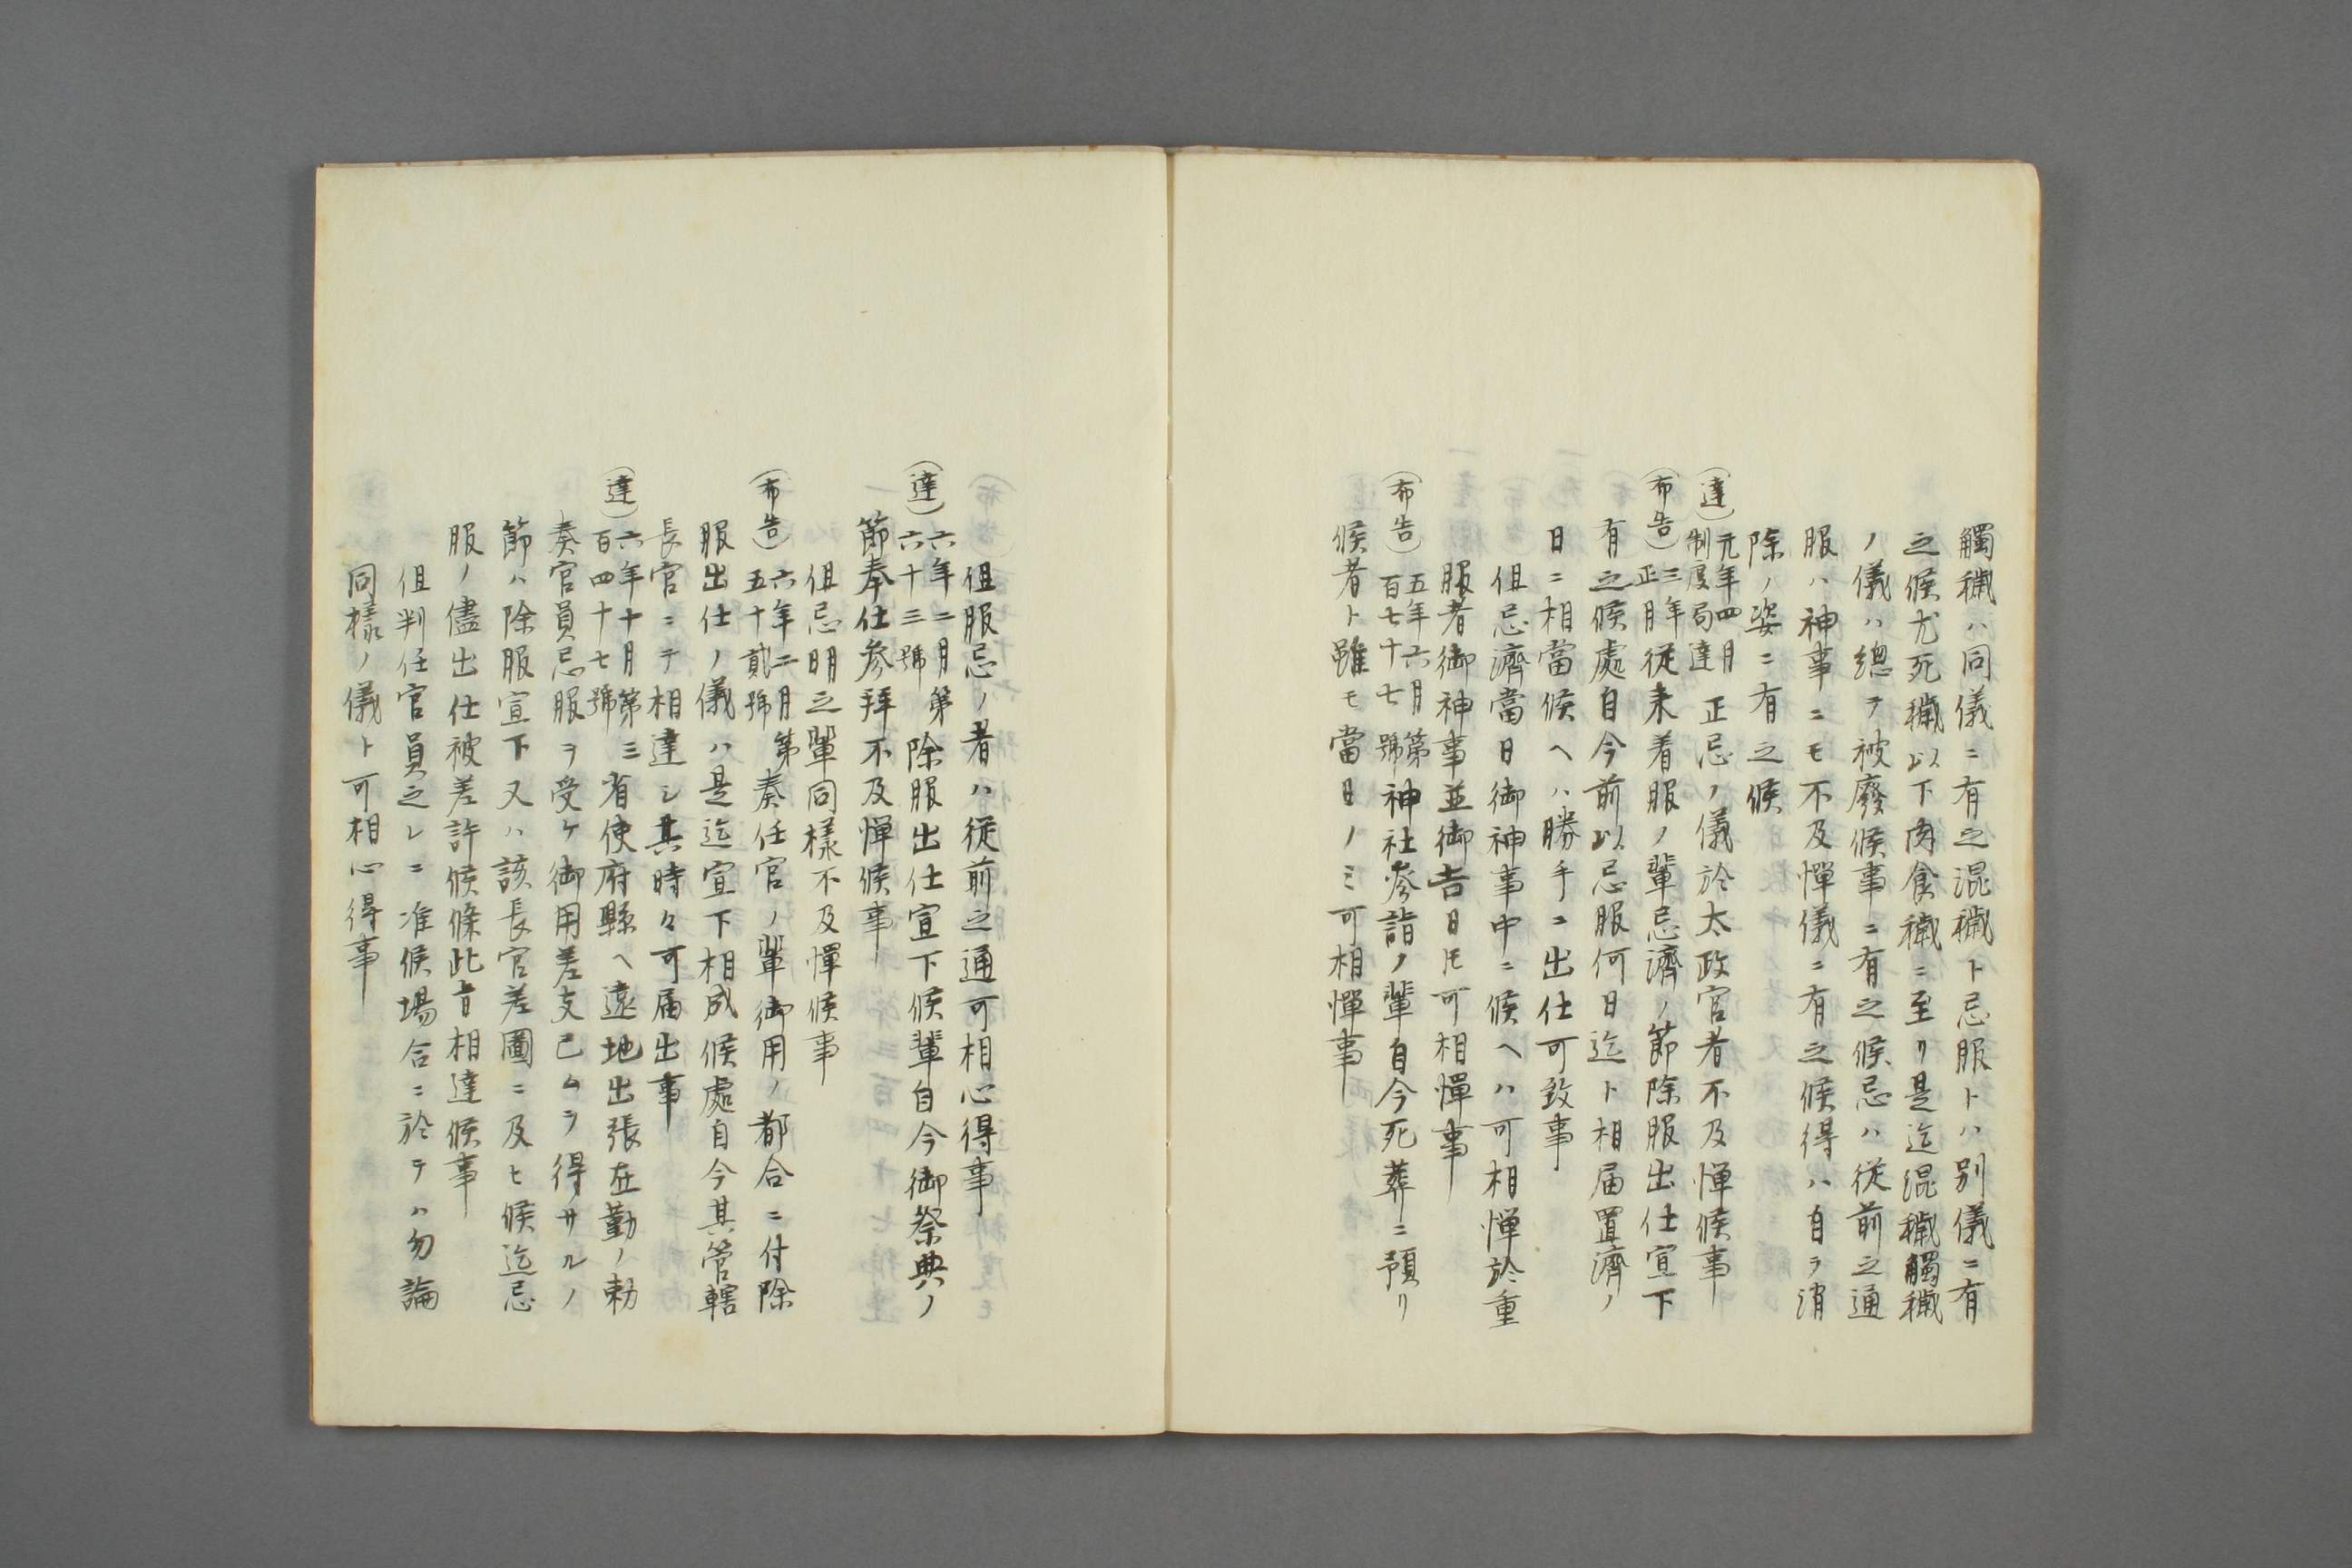 觸穢ハ同儀ニ有之混穢ト忌服トハ別儀ニ有
之候尤死穢以下肉食穢ニ至リ是迄混穢觸穢
ノ儀ハ總テ被廢候事ニ有之候忌ハ従前之通
服ハ神事ニモ不及憚儀ニ有之候得ハ自ラ消
除ノ姿ニ有之候
(達)元年四月制度局達 正忌ノ儀於太政官者不及憚候事
(布告)三年正月従来着服ノ輩忌濟ノ節除服出仕宣下
有之候處自今前以忌服何日迄ト相届置濟ノ
日ニ相當候ヘハ勝手ニ出仕可致事
但忌濟當日御神事中ニ候ヘハ可相憚於重
服者御神事並御吉日ヒ可相憚事
(布告)五年六月第百七十七號神社參詣ノ輩自今死葬ニ預リ
候者ト雖モ當日ノミ可相憚事
但服忌ノ者ハ従前之通可相心得事
(達)六年二月第六十三號 除服出仕宣下候輩自今御祭典ノ
節奉仕参拜不及憚候事
但忌明之輩同様不及憚候事
(布告)六年二月第五十貳號 奏任官ノ輩御用ノ都合ニ付除
服出仕ノ儀ハ是迄宣下相成候處自今其管轄
長官ニテ相達シ其時々可届出事
(達)六年十月第百四十七號 三省使府縣ヘ遠地出張在勤ノ勅
奏官員忌服ヲ受ケ御用差支已ムヲ得サルノ
節ハ除服宣下又ハ該長官差圖ニ及ヒ候迄忌
服ノ儘出仕被差許候條此旨相達候事
但判任官員之レニ准候場合ニ於テハ勿論
同様ノ儀ト可相心得事